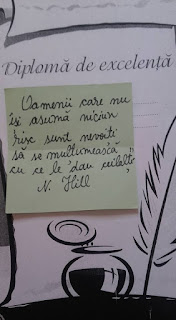 Diplomă de excelență
Oamenii care nu
își asumă niciun
risc sunt nevoiți
să se mulțumească
cu ce le dau ceilalți"
N. Hill